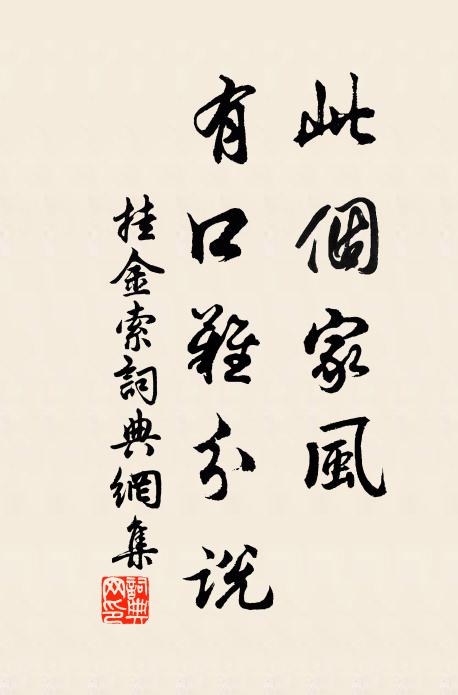 此個家風
有口難分說
挂金索詞典網集
詞典網印